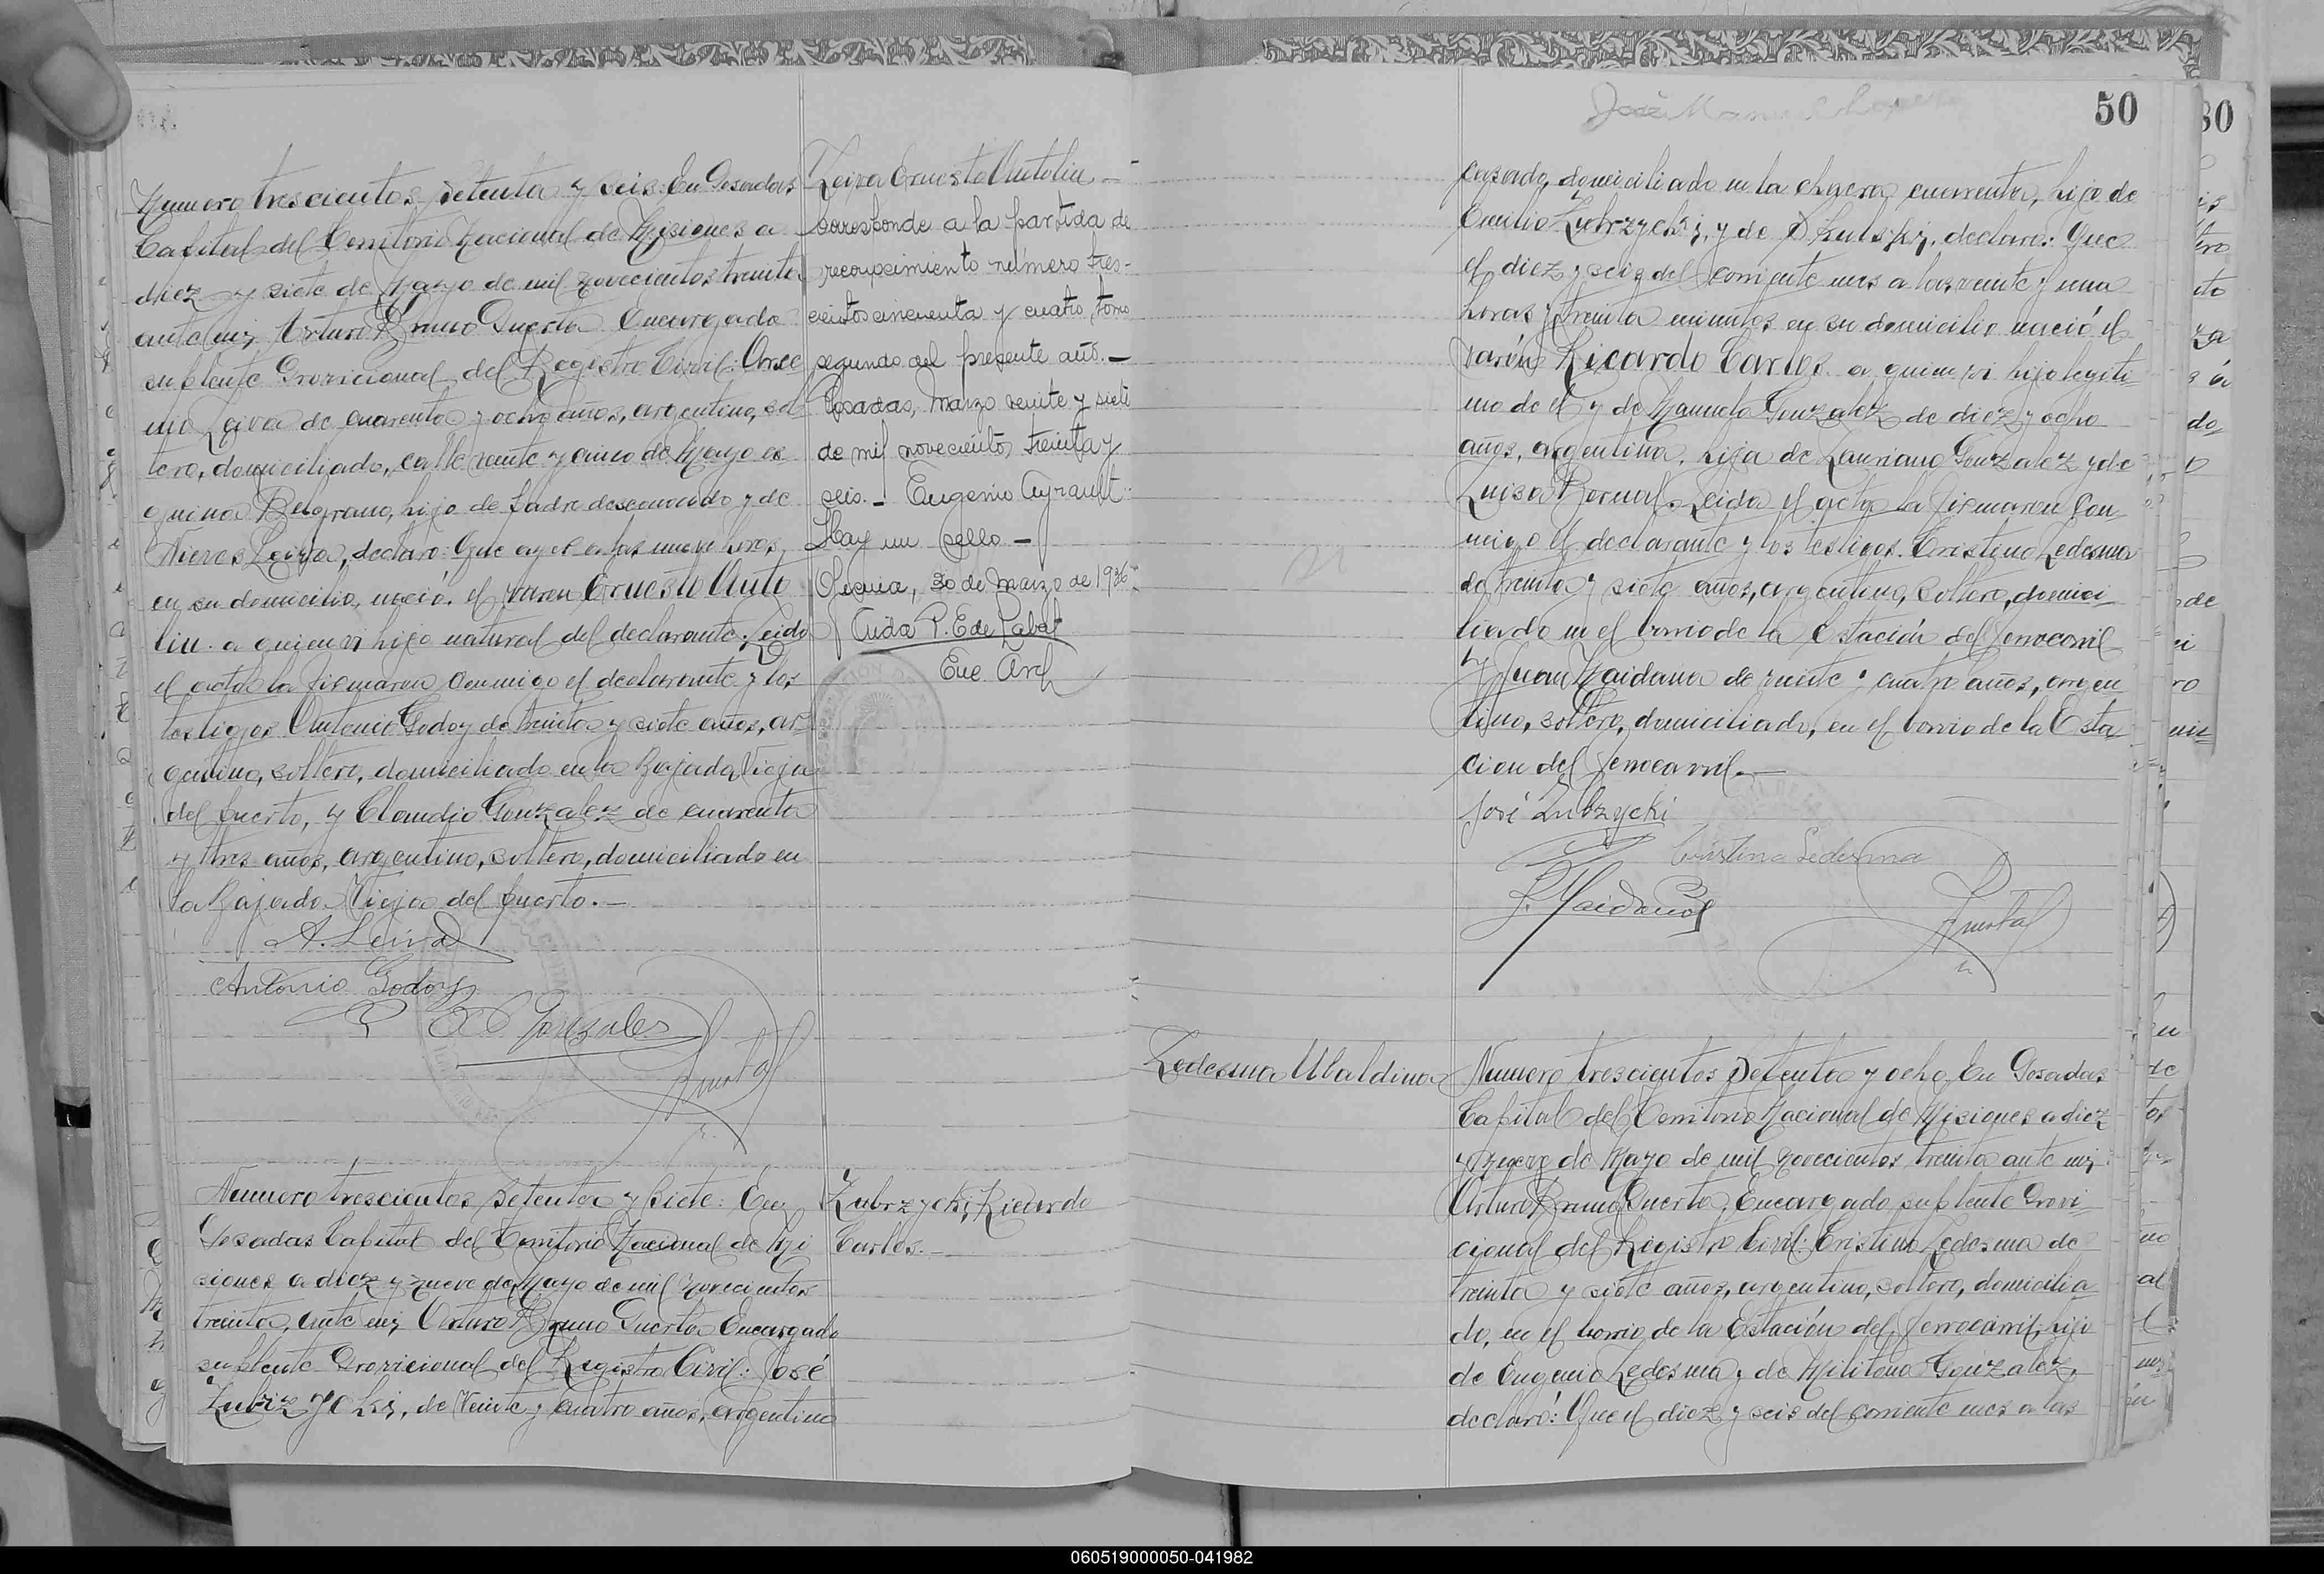 Numero trescientos setenta y seis: En Posadas
Capital del Territorio Nacional de Misiones a
diez y siete de Mayo de mil novecientos treinta
ante mi, Arturo Bruno Puerta Encargado
suplente Provicional del Registro Civil: Onec
imo Leiva de cuarenta y ocho años, argentino, sol
tero, domiciliado, calle veinte y cinco de Mayo es
quina Belgrano, hijo de padre desconocido y de
Nieves Leiva, declaro: Que ayer a las nueve horas,
en su domicilio, nació. el varon Ernesto Anto
lin. a quien vi hijo natural del declarante. Leida
el acta la firmaron conmigo el declarante y los
testigos Antonio Godoy de treinta y siete años, ar
gentino, soltero, domiciliado en la Bajada Vieja
del puerto, y Claudio Gonzalez de cuarenta
y tres años, argentino, soltero, domiciliado en
la Bajada Vieja del puerto.—
A. Leiva
Antonio Godoy
Gonzales
Leiva Ernesto Antolin —
corresponde a la partida de
reconocimiento número tres-
cientos cincuenta y cuatro, tomo
segundo del presente año. —
Posadas, Marzo veinte y siete
de mil novecientos treinta y
seis. — Eugenio Ayrault
Hay un sello —
30 de Marzo de 1936
P. E de Labat
Enc. Arch
Numero trescientos setenta y siete: En
Posadas Capital del Territorio Nacional de Mi
siones a diez y nueve de Mayo de mil novecientos
treinta, ante mi, Arturo Bruno Puerta Encargado
suplente Provicional del Registro Civil: José
Zubrzycki, de Veinte y cuatro años, argentino
Zubrzycki, Ricardo
Carlos.—
50
80
José
casado, domiciliado en la chacra cuarenta, hijo de
Emilio Zubrzycki, y de declaro: Que
el diez y seis del corriente mes a las veinte y una
horas y treinta minutos en su domicilio nació el
varón Ricardo Carlos a quien vi hijo legiti
mo de el y de Manuela Gonzalez de diez y ocho
años, argentina, hija de Lauriano Gonzalez y de
Luisa Bernal. Leida el acta la firmaron con
migo el declarante y los testigos Cristino Ledesma
de treinta y siete años, argentino, soltero, domici
liado en el barrio de la Estación del Ferrocarril
y Juan Maidana de veinte y cuatro años, argen
tino, soltero, domiciliado, en el barrio de la Esta
cion del Ferrocarril.—
José Zubzycki
Cristino Ledesma
J. Maidana
Ledesma Ubaldina
Numero trescientos Setenta y ocho. En Posadas
Capital del Territorio Nacional de Misiones a diez
y nueve de Mayo de mil novecientos treinta ante mi,
Arturo Bruno Puerta, Encargado suplente Provi
cional del Registro Civil: Cristino Ledesma de
treinta y siete años, argentino, soltero, domicilia
do, en el barrio de la Estación del Ferrocarril, hijo
de Eugenio Ledesma, y de Militona Gonzalez,
declaró: Que el diez y seis del corriente mes a las
060519000050-041982